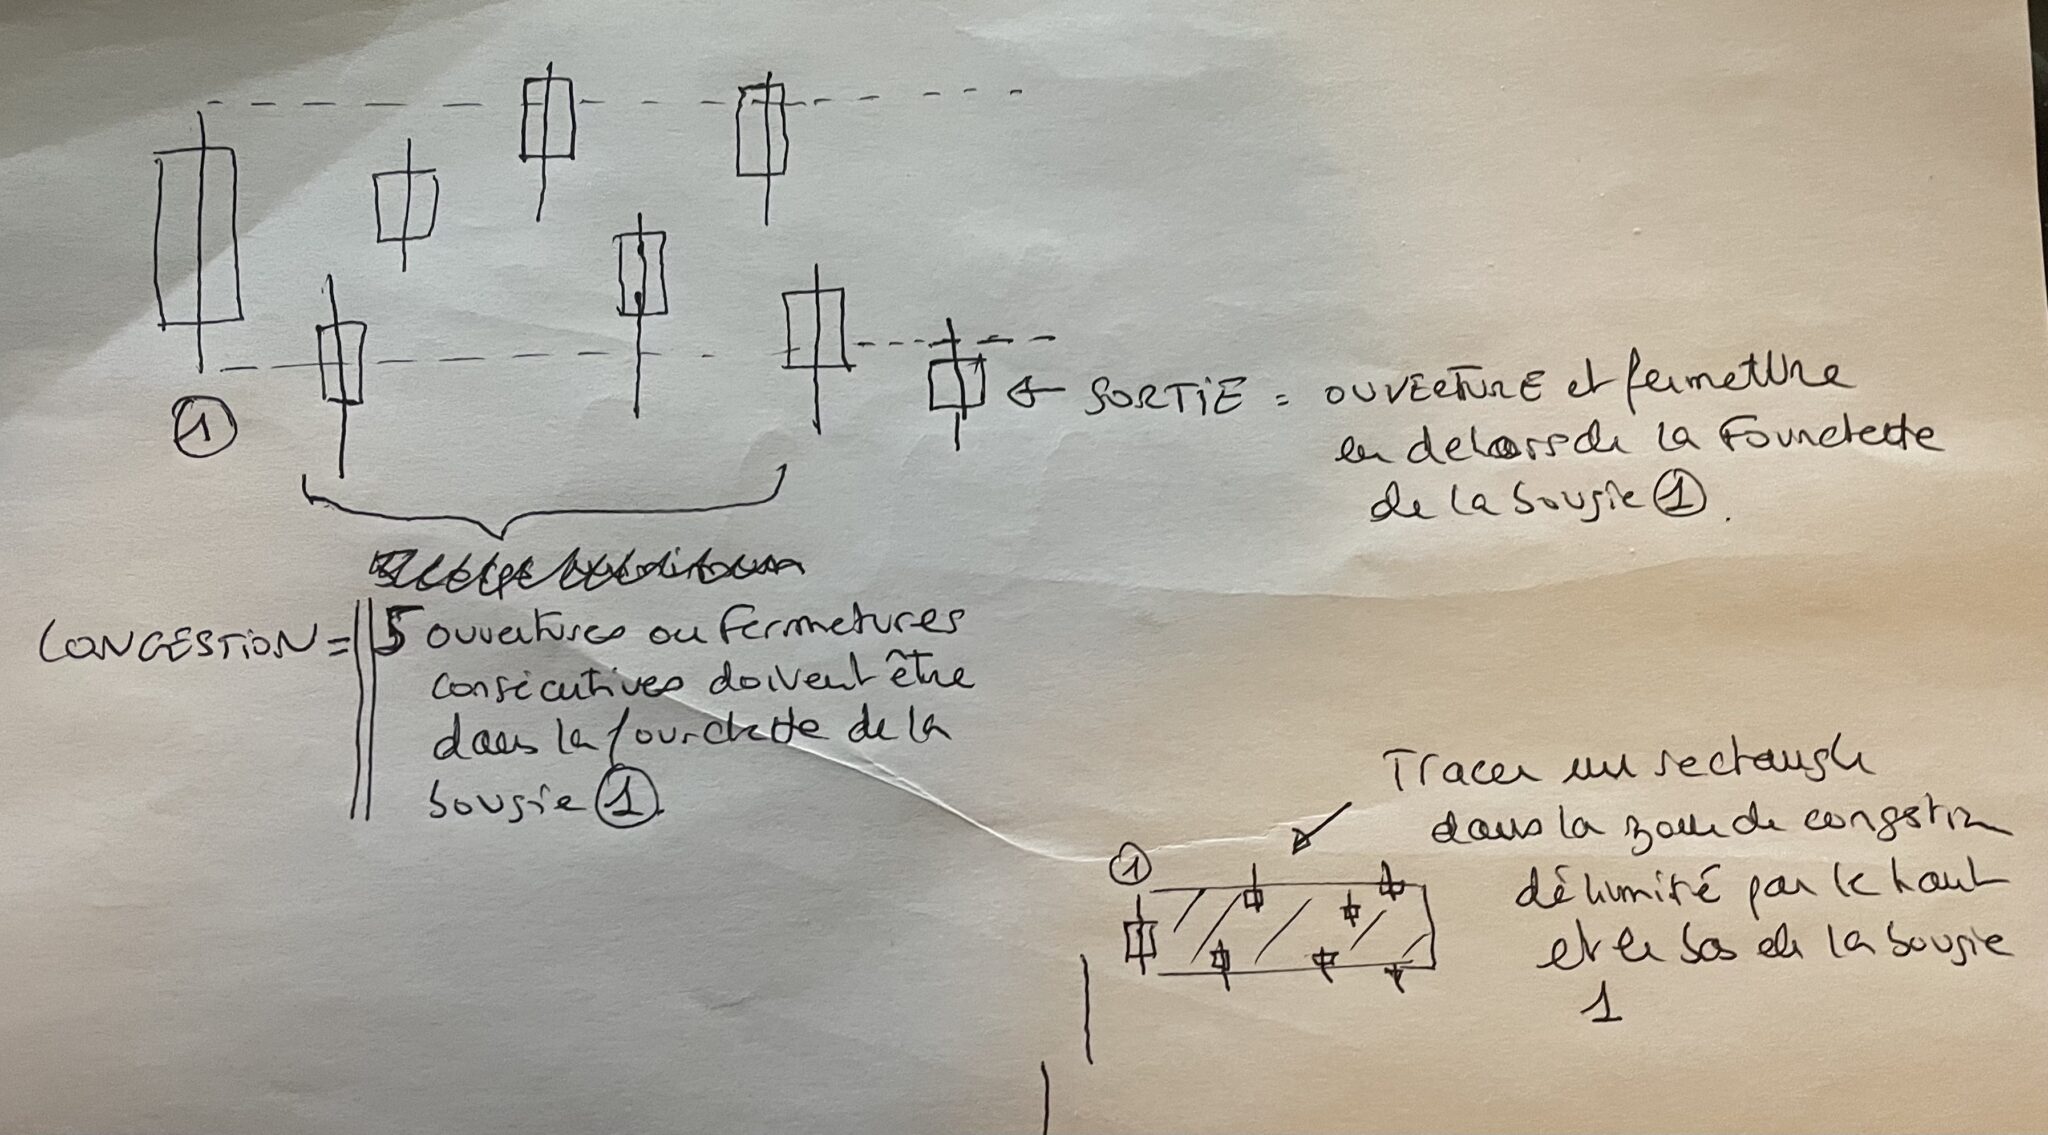 ①
← SORTIE = OUVERTURE et fermeture
en dehors de la Fourchette
de la bougie ①.
CONGESTION = 5 ouvertures ou Fermetures
consécutives doivent être
dans la fourchette de la
bougie ①.
Tracer un rectangle
dans la zone de congestion
délimité par le haut
et le bas de la bougie
1
①